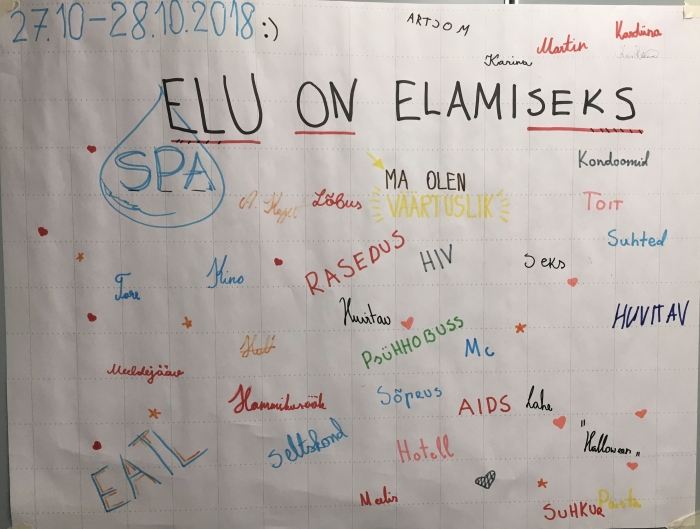 27.10-28.10.2018 :)
ARTJOM
Karina
Martin
Karolina
ELU ON ELAMISEKS
SPA
Kondoomid
MA OLEN
VÄÄRTUSLIK
Lõbus
TOIT
Suhted
RASEDUS
HIV
Seks
Tore
Kino
Huvitav
HUVITAV
PSÜHHOBUSS
Mc
Meeldejääv
Hommikusöök
Sõprus
AIDS
Lahe
EATL
Seltskond
Hotell
"Halloween"
Meelis
SUHKUR